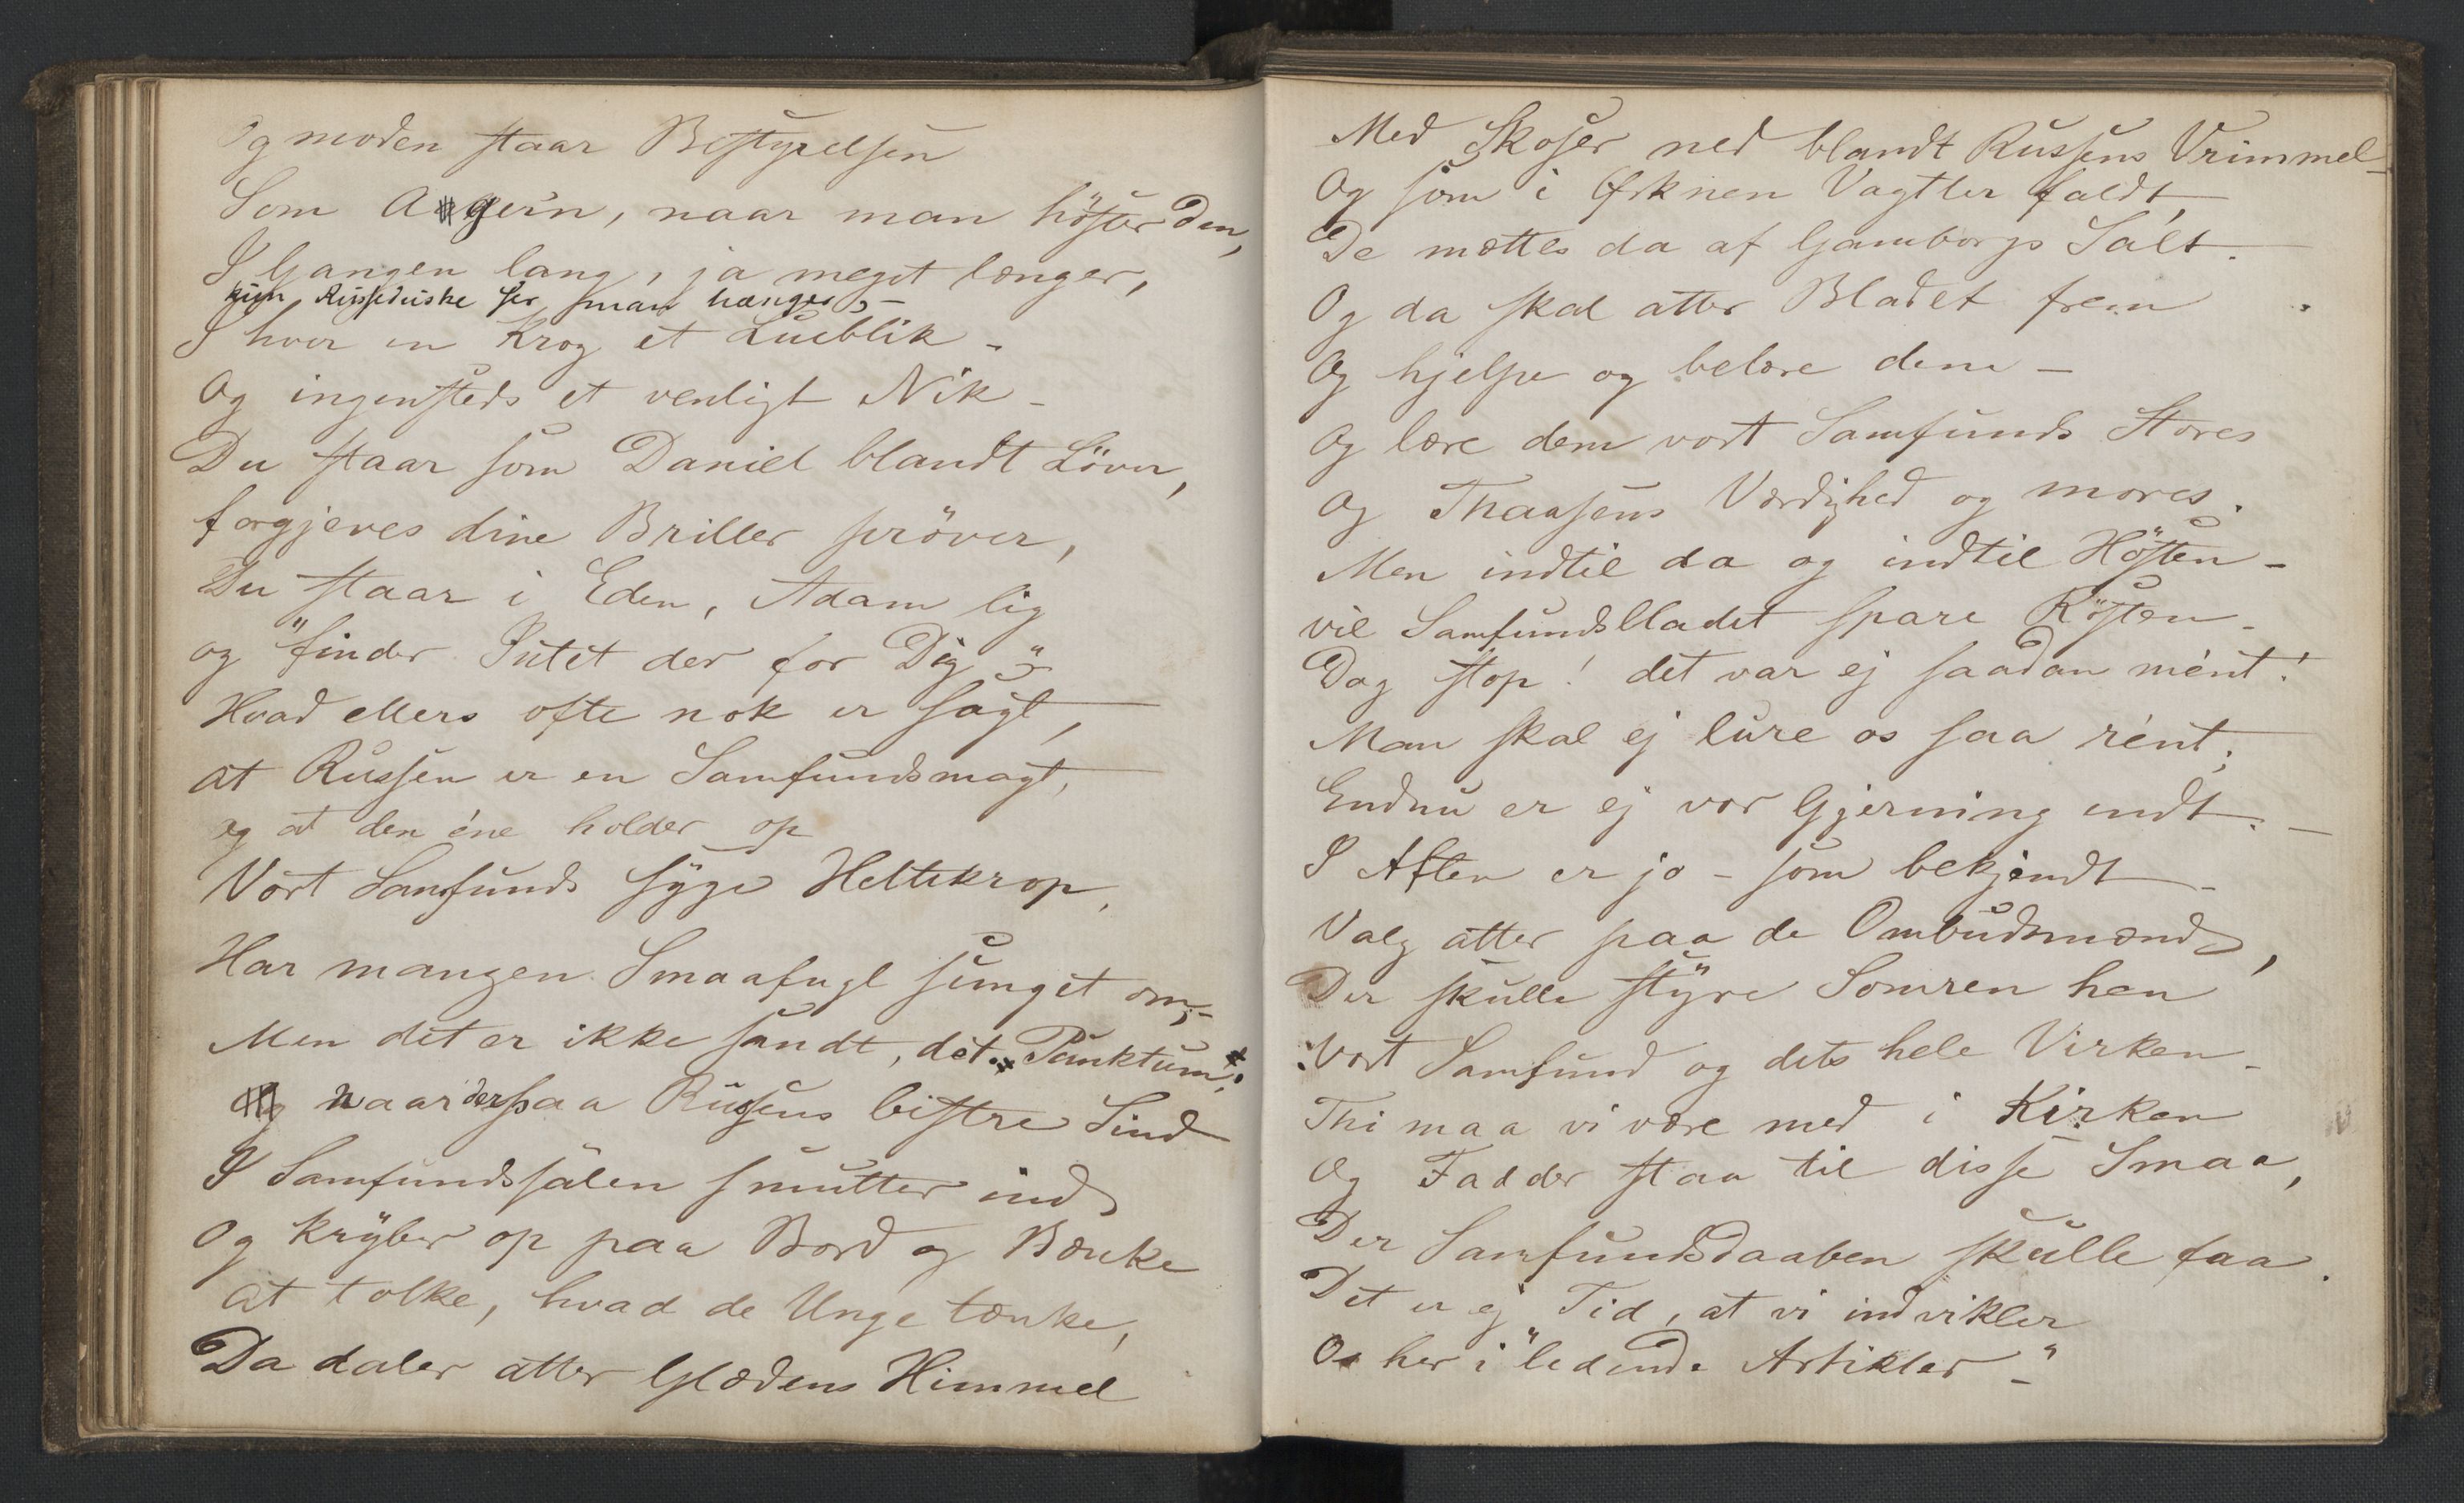 Og moden staar Bestyrelsen
Som Ageren, naar man höster den,
I Gangen lang, ja meget længer,
kun Russeduske ser man hænger, –
I hver en Krog et Lueblik –
Og ingensteds et venligt Nik –
Du staar som Daniel blandt Löver,
forgjeves dine Briller pröver,
Du staar i Eden, Adam lig
og "finder Intet der for Dig" –
Hvad ellers ofte nok er sagt,
at Russen er en Samfundsmagt,
og at den éne holder op
Vort Samfunds syge Heltekrop,
Har mangen Smaafugl sunget om, –
Men det er ikke sandt, det. Punktum.
naar der paa Russens bistre Sind
I Samfundssalen smutter ind
Og kryber op paa Bord og Bænke
at tolke, hvad de Unge tænke,
Da daler atter Glædens Himmel
Med Skoser ned blandt Russens Vrimmel –
Og som i Ørknen Vagtler faldt,
De mættes da af Gamborgs Salt.
Og da skal atter Bladet frem
Og hjelpe og belære dem –
Og lære dem vort Samfunds Stores
Og Thaasens Værdighed og mores.
Men indtil da og indtil Hösten –
vil Samfundsbladet spare Rösten –
Dog stop! det var ej saadan ment!
Man skal ej lure os saa rént;
Endnu er ej vor Gjerning endt. –
I Aften er jo – som bekjendt –
Valg atter paa de Ombudsmænd,
Der skulle styre Somren hen
Vort Samfund og dets hele Virken –
Thi maa vi være med i Kirken
Og Fadder staa til disse Smaa,
Der Samfundsdaaben skulle faa.
Det er ej Tid, at vi indvikler
Os her i "ledende Artikler" –